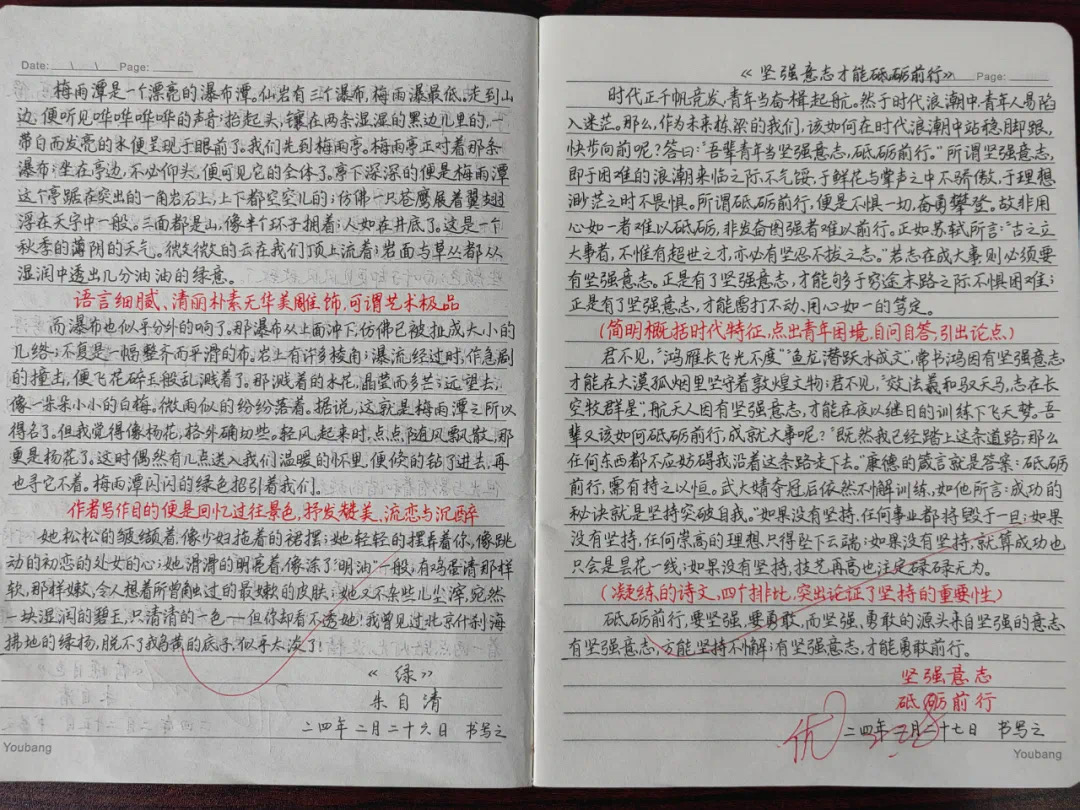 Date: \ \ Page:
梅雨潭是一个漂亮的瀑布潭。仙岩有三个瀑布,梅雨瀑最低。走到山
边,便听见哗哗哗哗的声音;抬起头,镶在两条湿湿的黑边儿里的,一
带白而发亮的水便呈现于眼前了。我们先到梅雨亭。梅雨亭正对着那条
瀑布;坐在亭边,不必仰头,便可见它的全体了。亭下深深的便是梅雨潭
这个亭踞在突出的一角岩石上,上下都空空儿的;仿佛一只苍鹰展着翼翅
浮在天宇中一般。三面都是山,像半个环子拥着;人如在井底了。这是一个
秋季的薄阴的天气。微微的云在我们顶上流着;岩面与草丛都从
湿润中透出几分油油的绿意。
语言细腻、清丽朴素无华美雕饰,可谓艺术极品
而瀑布也似乎分外的响了。那瀑布从上面冲下,仿佛已被扯成大小的
几绺;不复是一幅整齐而平滑的布。岩上有许多棱角;瀑流经过时,作急剧
的撞击,便飞花碎玉般乱溅着了。那溅着的水花,晶莹而多芒;远望去,
像一朵朵小小的白梅,微雨似的纷纷落着。据说,这就是梅雨潭之所以
得名了。但我觉得像杨花,格外确切些。轻风起来时,点点随风飘散,那
更是杨花了。这时偶然有几点送入我们温暖的怀里,便倏的钻了进去,再
也寻它不着。梅雨潭闪闪的绿色招引着我们。
作者写作目的便是回忆过往景色,抒发赞美、流恋与沉醉
她松松的皱缬着,像少妇拖着的裙摆;她轻轻的摆弄着你,像跳
动的初恋的处女的心;她滑滑的明亮着,像涂了“明油”一般,有鸡蛋清那样
软,那样嫩,令人想着所曾触过的最嫩的皮肤;她又不杂些儿尘滓,宛然
一块湿润的碧玉,只清清的一色——但你却看不透她!我曾见过北京什刹海
拂地的绿杨,脱不了鹅黄的底子,似乎太淡了!
《绿》
朱自清
二四年二月二十六日 书写之
Youbang
《坚强意志才能砥砺前行》
Page:
时代正千帆竞发,青年当奋楫起航。然于时代浪潮中青年人易陷
入迷茫。那么,作为未来栋梁的我们,该如何在时代浪潮中站稳脚跟,
快步向前呢?答曰:“吾辈青年当坚强意志,砥砺前行。”所谓坚强意志,
即于困难的浪潮来临之际不气馁,于鲜花与掌声之中不骄傲,于理想
渺茫之时不畏惧。所谓砥砺前行,便是不惧一切,奋勇攀登。故非用
心如一者难以砥砺,非发奋图强者难以前行。正如苏轼所言:“古之立
大事者,不惟有超世之才,亦必有坚忍不拔之志。”若志在成大事则必须要
有坚强意志。正是有了坚强意志,才能够于穷途末路之际不惧困难;
正是有了坚强意志,才能雷打不动,用心如一的笃定。
(简明概括时代特征,点出青年困境,自问自答,引出论点)
君不见,“鸿雁长飞光不度”“鱼龙潜跃水成文”,常书鸿因有坚强意志
才能在大漠孤烟里坚守着敦煌文物;君不见,“效法羲和驭天马,志在长
空牧群星”航天人因有坚强意志,才能在夜以继日的训练下飞天梦。吾
辈又该如何砥砺前行,成就大事呢?“既然我已经踏上这条道路;那么
任何东西都不应妨碍我沿着这条路走下去。”康德的箴言就是答案:砥砺
前行,需有持之以恒。武大靖夺冠后依然不懈训练,如他所言:成功的
秘诀就是坚持突破自我。“如果没有坚持,任何事业都将毁于一旦;如果
没有坚持,任何崇高的理想只得坠下云端;如果没有坚持,就算成功也
只会是昙花一线;如果没有坚持,技艺再高也注定碌碌无为。
(凝练的诗文,四个排比,突出论证了坚持的重要性)
砥砺前行,要坚强,要勇敢,而坚强、勇敢的源头来自坚强的意志
有坚强意志,方能坚持不懈;有坚强意志,才能勇敢前行。
坚强意志
砥砺前行
优
二四年二月二十七日 书写之
Youbang